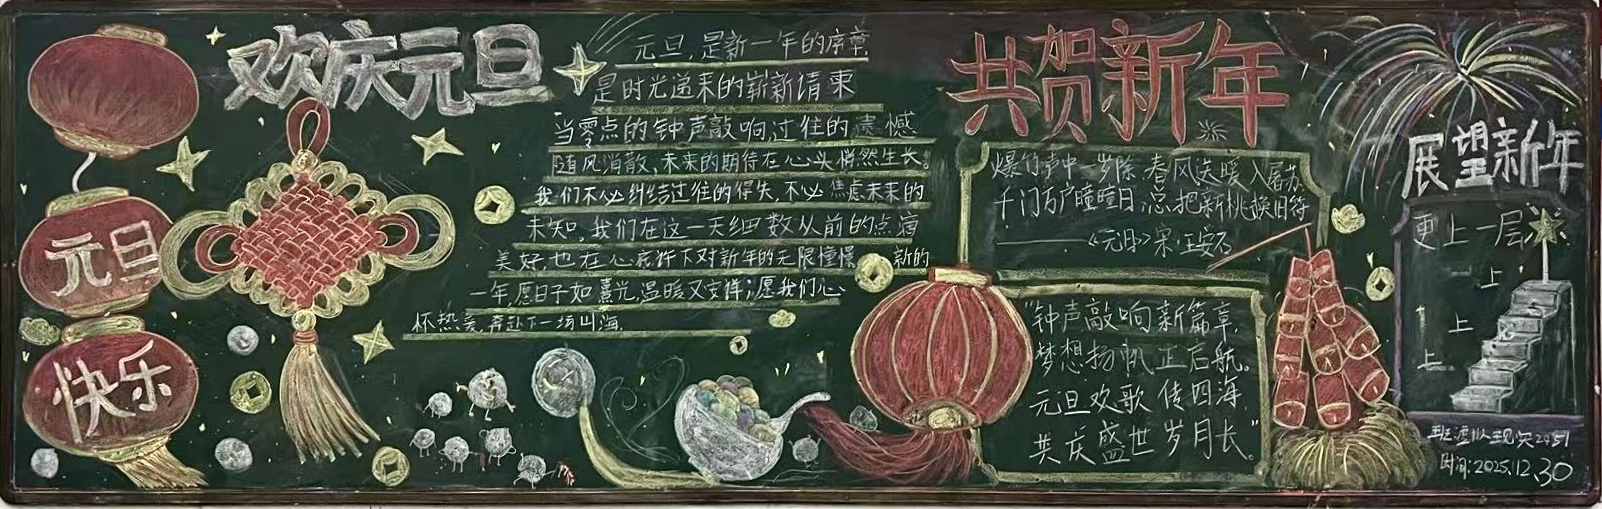 欢庆元旦
元旦
快乐
元旦,是新一年的序章,
是时光递来的崭新请柬
当零点的钟声敲响过往的遗憾
随风消散、未来的期待在心头悄然生长。
我们不必纠结过往的得失,不必焦虑未来的
未知,我们在这一天细数从前的点滴
美好,也在心底许下对新年的无限憧憬 新的
一年,愿日子如熹光,温暖又安详;愿我们心
怀热爱,奔赴下一场山海.
共贺新年
爆竹声中一岁除,春风送暖入屠苏.
千门万户曈曈日,总把新桃换旧符
——《元日》宋·王安石
"钟声敲响新篇章,
梦想扬帆正启航。
元旦欢歌传四海,
共庆盛世岁月长。"
展望新年
更上一层
一上
上
上
2451
时间:2025.12.30